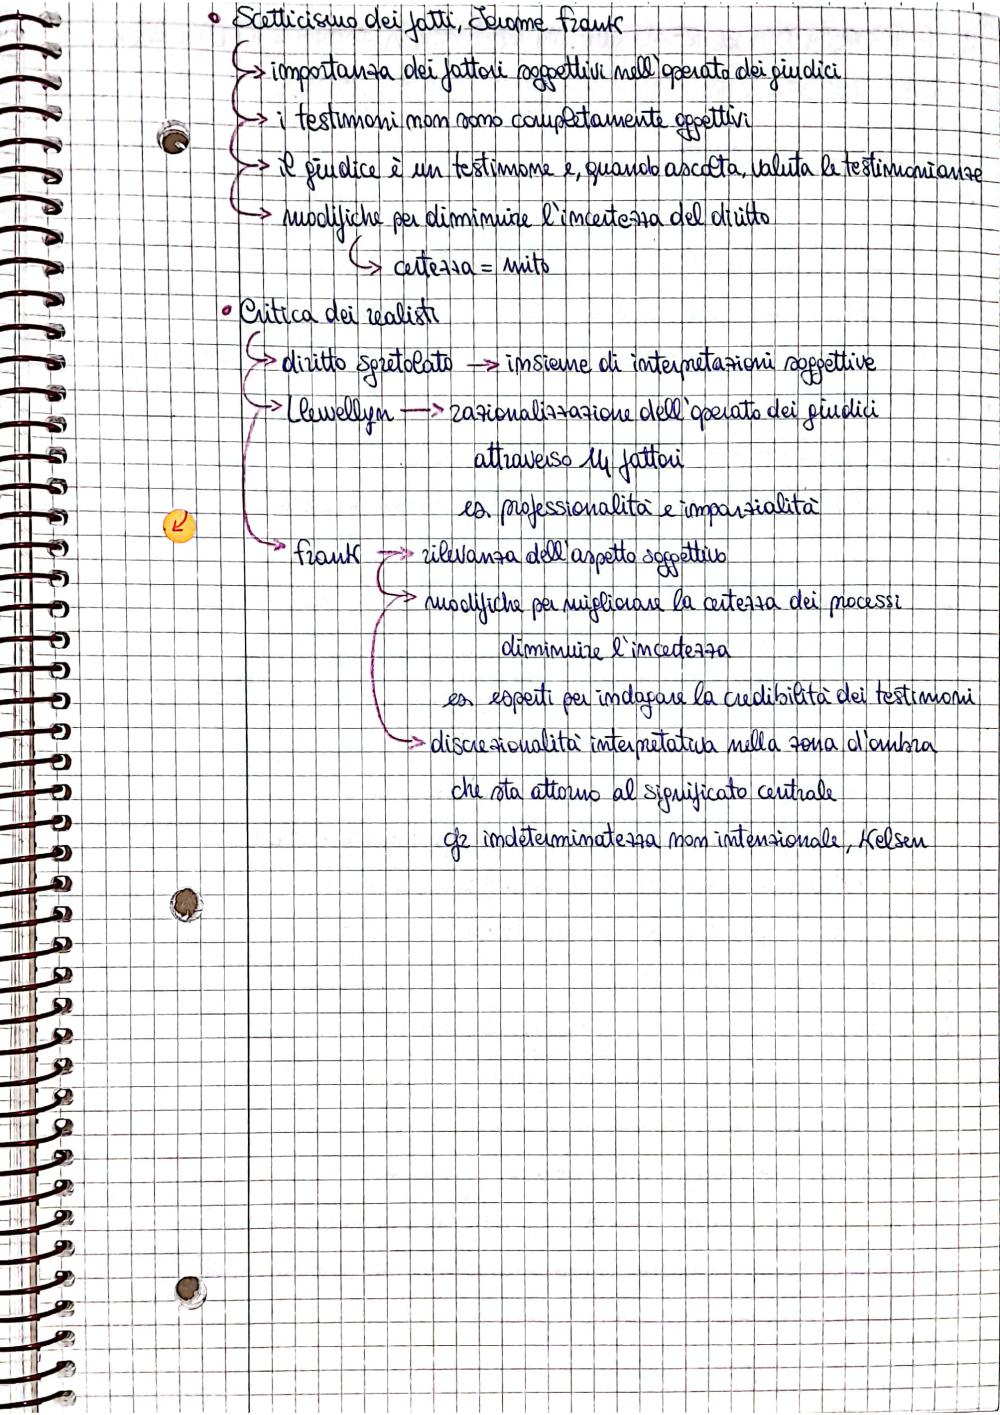 • Scetticismo dei fatti, Jerome Frank
→ importanza dei fattori soggettivi nell'operato dei giudici
→ i testimoni non sono completamente oggettivi
→ il giudice è un testimone e, quando ascolta, valuta le testimonianze
→ modifiche per diminuire l'incertezza del diritto
→ certezza = mito
• Critica dei realisti
→ diritto sgretolato → insieme di interpretazioni soggettive
→ Llewellyn → razionalizzazione dell'operato dei giudici
attraverso 14 fattori
es. professionalità e imparzialità
→ Frank → rilevanza dell'aspetto soggettivo
→ modifiche per migliorare la certezza dei processi
diminuire l'incertezza
es. esperti per indagare la credibilità dei testimoni
→ discrezionalità interpretativa nella zona d'ombra
che sta attorno al significato centrale
indeterminatezza non intenzionale, Kelsen